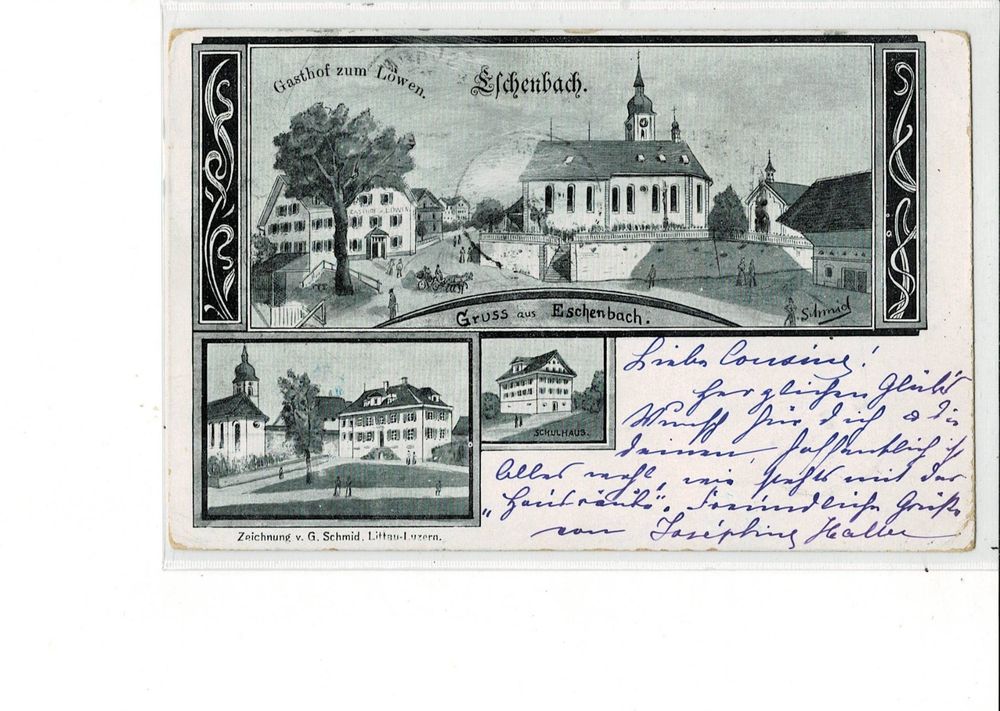 Gasthof zum Löwen.
Eschenbach.
GASTHOF z. LÖWEN
Gruss aus Eschenbach.
Schmid
SCHULHAUS.
Liebe Cousine!
herzlichen Glücks
Wunsch für dich & die
deinen, hoffentlich ist
Alles wohl, wie stehts mit der
Freundliche Grüße
von Joséphine Haller
Zeichnung v. G. Schmid, Littau-Luzern.